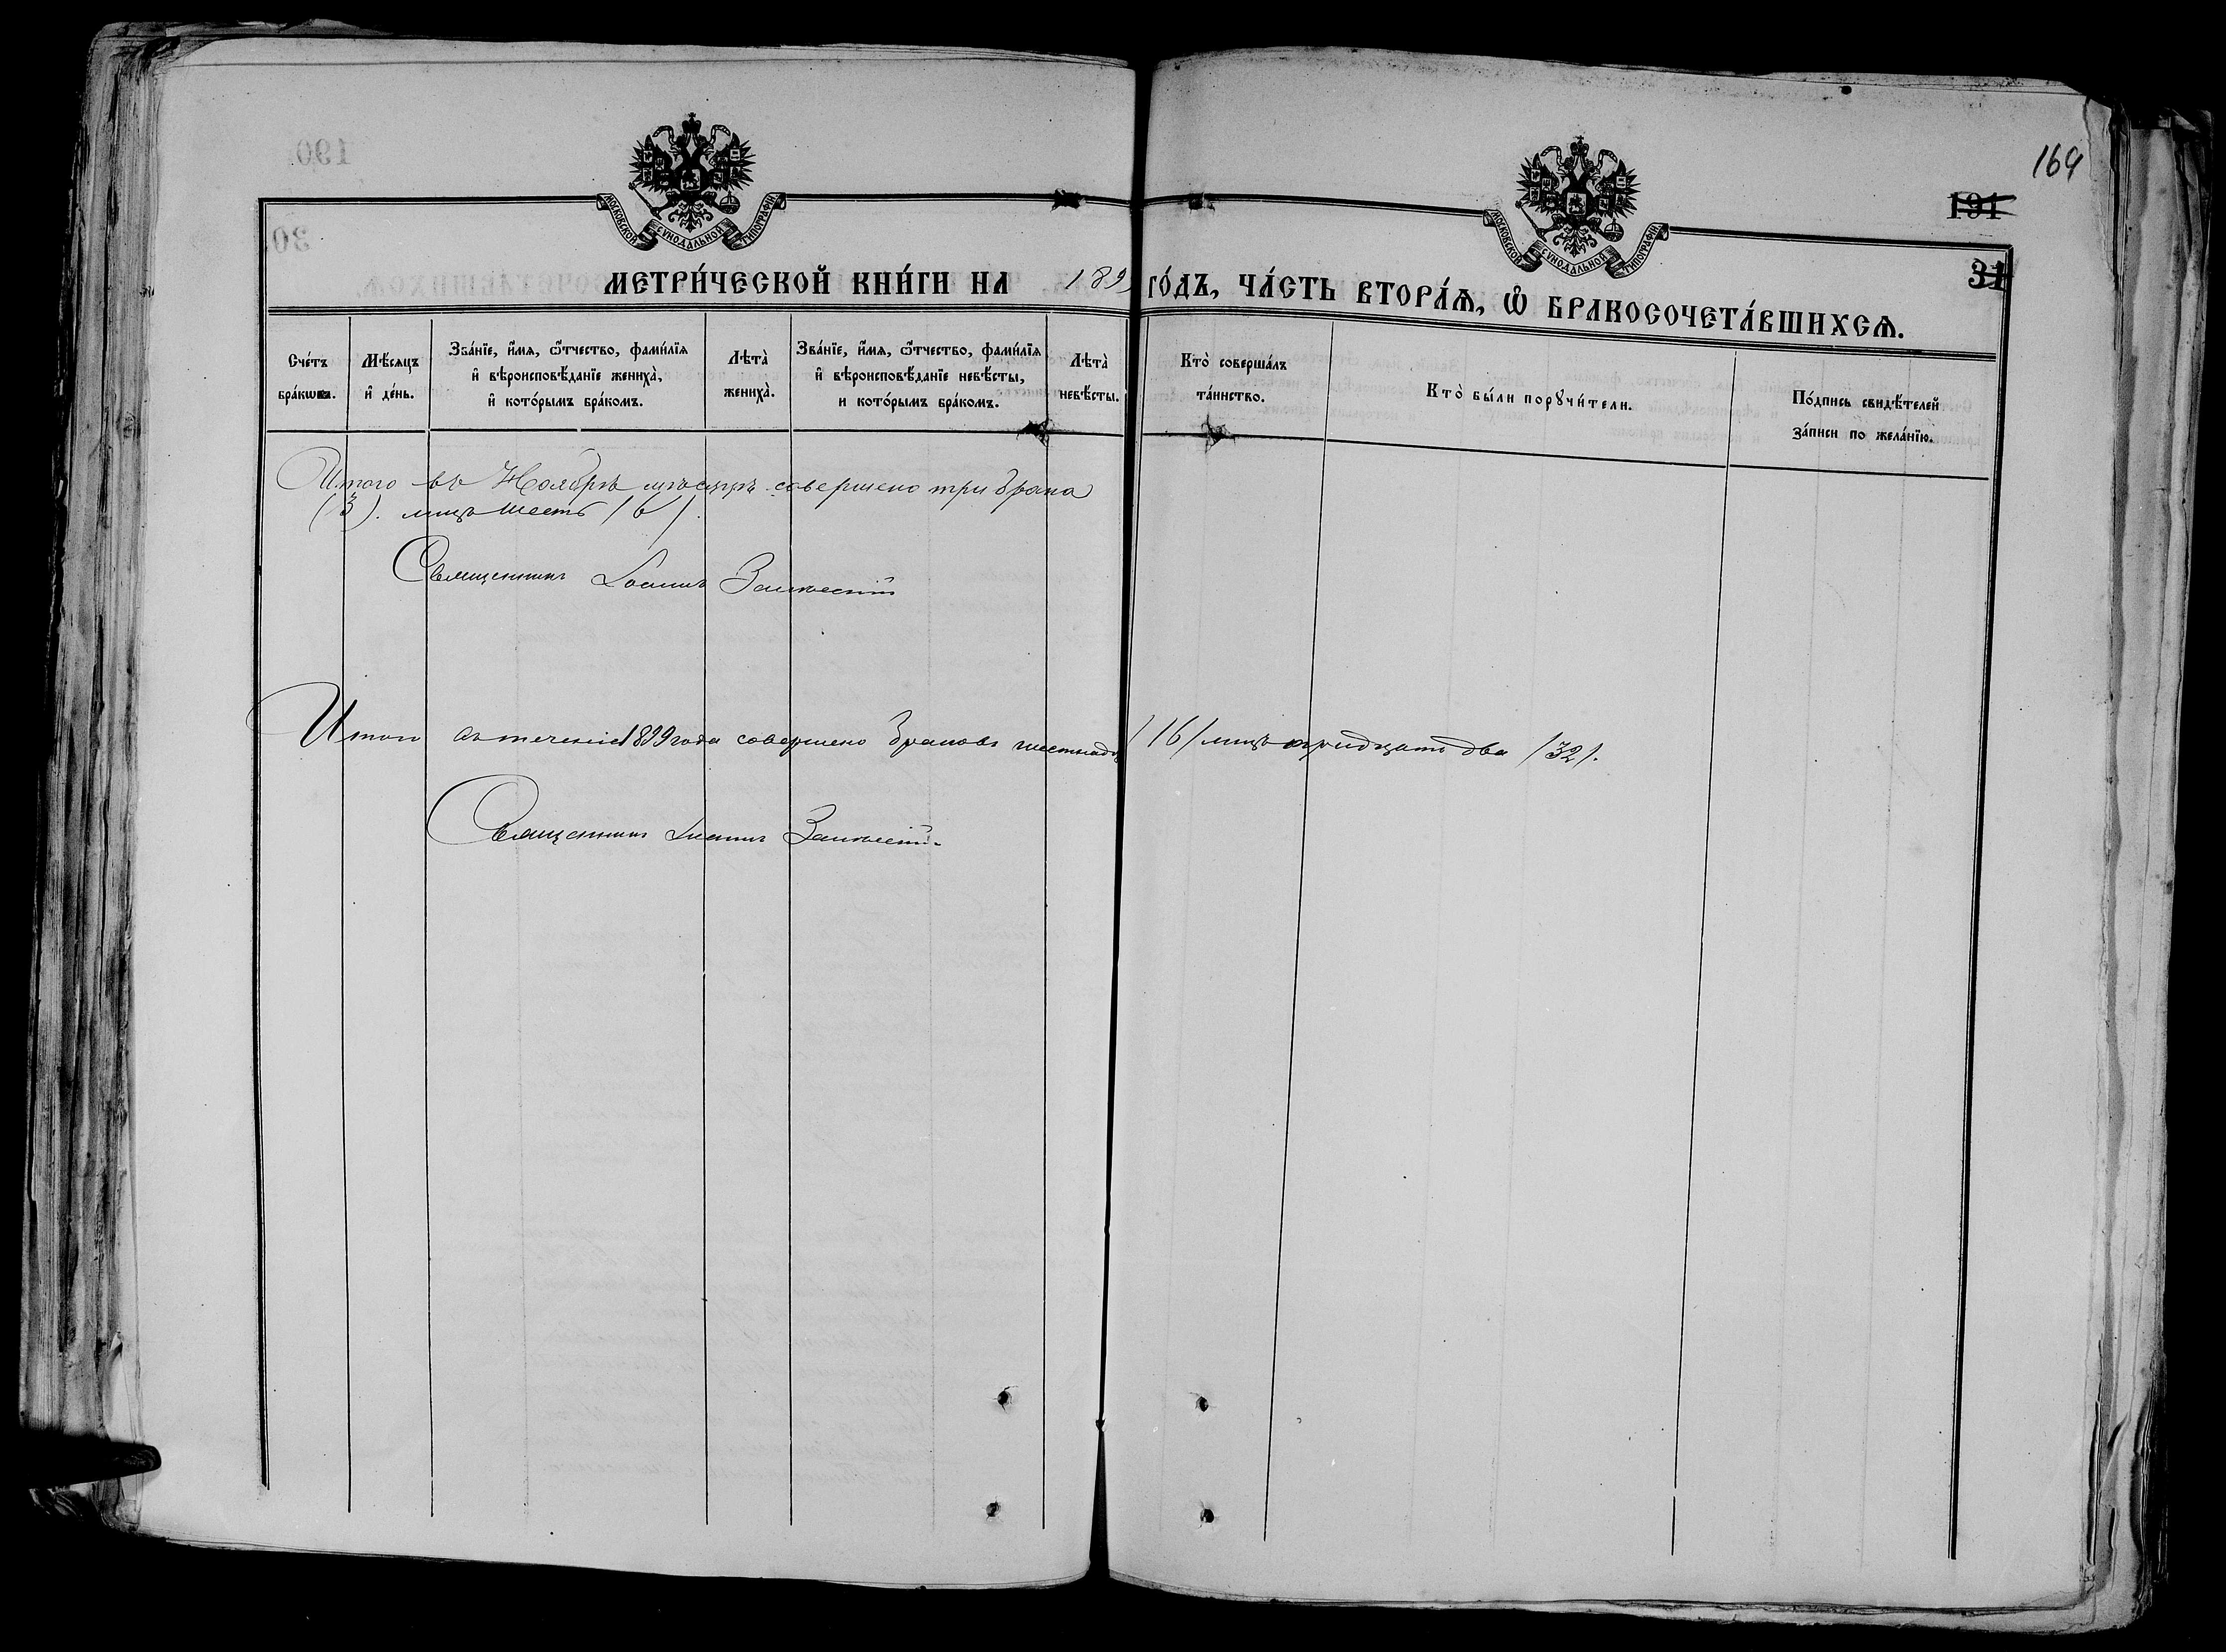 169
191
31
МОСКОВСКОЙ СѴНОДАЛЬНОЙ ТИПОГРАФІИ
МОСКОВСКОЙ СѴНОДАЛЬНОЙ ТИПОГРАФІИ
МЕТРИ́ЧЕСКОЙ КНИ́ГИ НА 1899 ГО́ДЪ, ЧА́СТЬ ВТОРА́Ѧ, Ѽ БРАКОСОЧЕТА́ВШИХСѦ.
Сче́тъ бра́кѡвъ.
Мѣ́сяцъ и҆ де́нь.
Зва́нїе, и҆́мя, ѻ҆́тчество, фами́лїя и҆ вѣроисповѣ́данїе жениха̀, и҆ кото́рымъ бра́комъ.
Лѣта̀ жениха̀.
Зва́нїе, и҆́мя, ѻ҆́тчество, фами́лїя и҆ вѣроисповѣ́данїе невѣ́сты, и кото́рымъ бра́комъ.
Лѣта̀ невѣ́сты.
Кто̀ соверша́лъ та́инство.
Кто̀ бы́ли порꙋчи́тели.
По́дпись свидѣ́телей за́писи по жела́нїю.
Итого въ Ноябрѣ мѣсяцѣ совершено три брака
(3). лицъ шесть /6/.
Священникъ Іоаннъ
Итого въ теченіе 1899 года совершено браковъ шестнадц /16/ лицъ тридцать два /32/.
Священникъ Іоаннъ